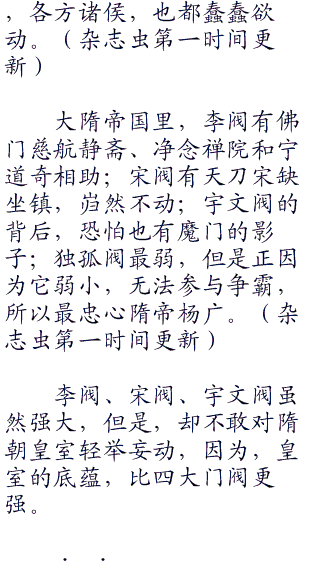 ，各方诸侯，也都蠢蠢欲
动。（杂志虫第一时间更
新）
大隋帝国里，李阀有佛
门慈航静斋、净念禅院和宁
道奇相助；宋阀有天刀宋缺
坐镇，岿然不动；宇文阀的
背后，恐怕也有魔门的影
子；独孤阀最弱，但是正因
为它弱小，无法参与争霸，
所以最忠心隋帝杨广。（杂
志虫第一时间更新）
李阀、宋阀、宇文阀虽
然强大，但是，却不敢对隋
朝皇室轻举妄动，因为，皇
室的底蕴，比四大门阀更
强。
．．